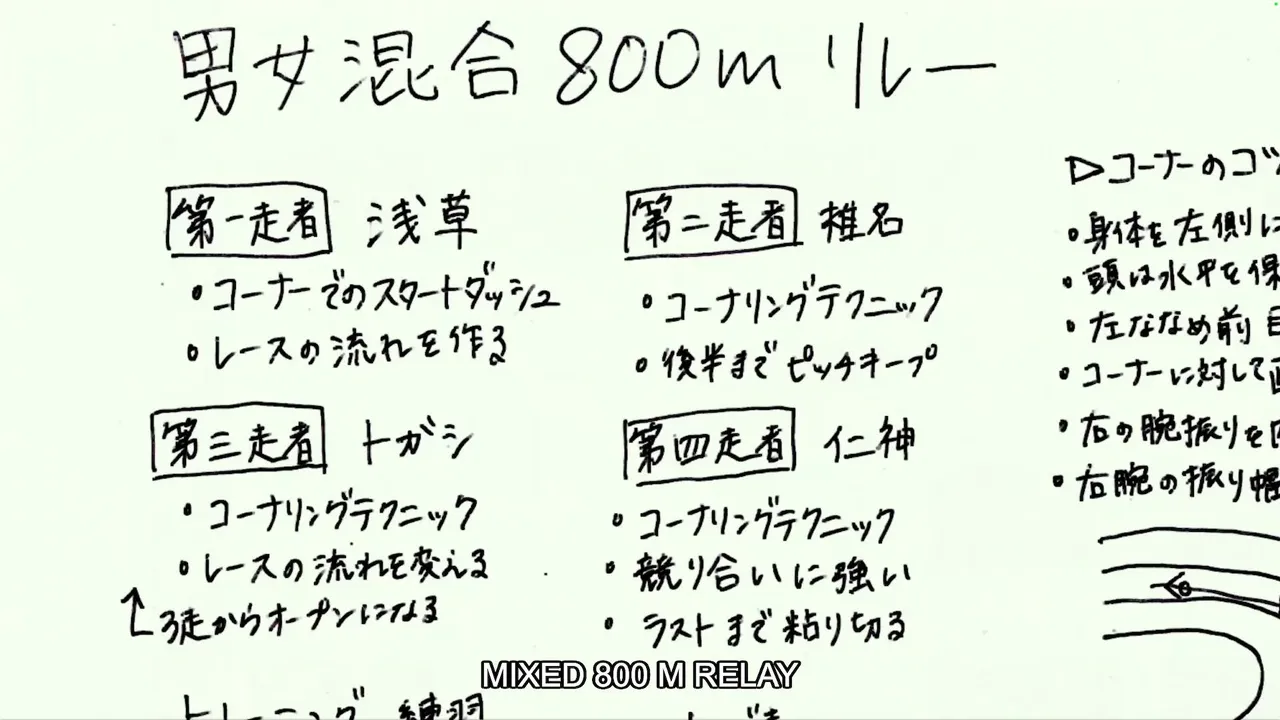 男女混合800mリレー
第一走者 浅草
・コーナーでのスタートダッシュ
・レースの流れを作る
第二走者 椎名
・コーナリングテクニック
・後半までピッチキープ
第三走者 トガシ
・コーナリングテクニック
・レースの流れを変える
↑3走からオープンになる
第四走者 仁神
・コーナリングテクニック
・競り合いに強い
・ラストまで粘り切る
▷コーナーのコツ
・身体を左側に
・頭は水平を保
・左ななめ前
・コーナーに対して
・右の腕振りを
・右腕の振り幅
トレーニング 練習
MIXED 800 M RELAY